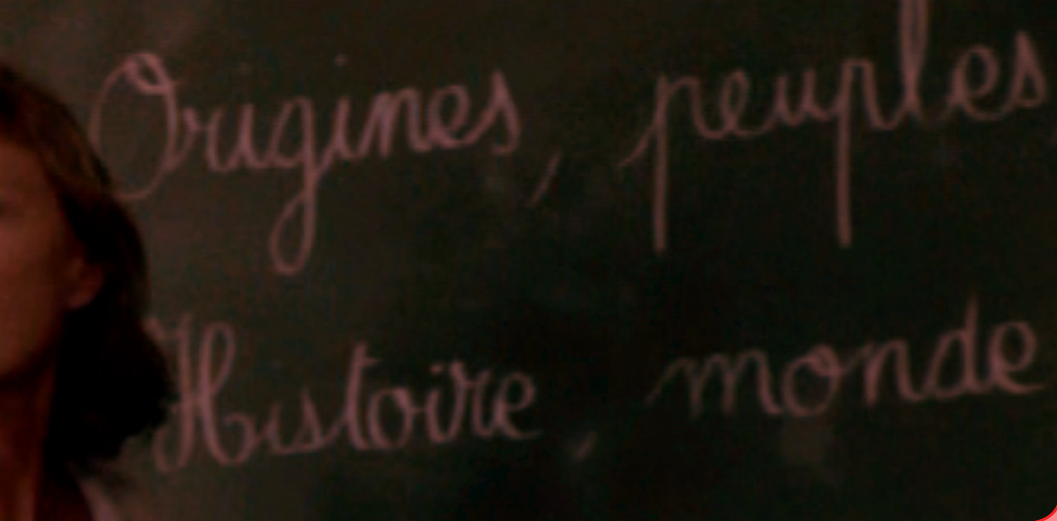 Origines, peuples
Histoire, monde